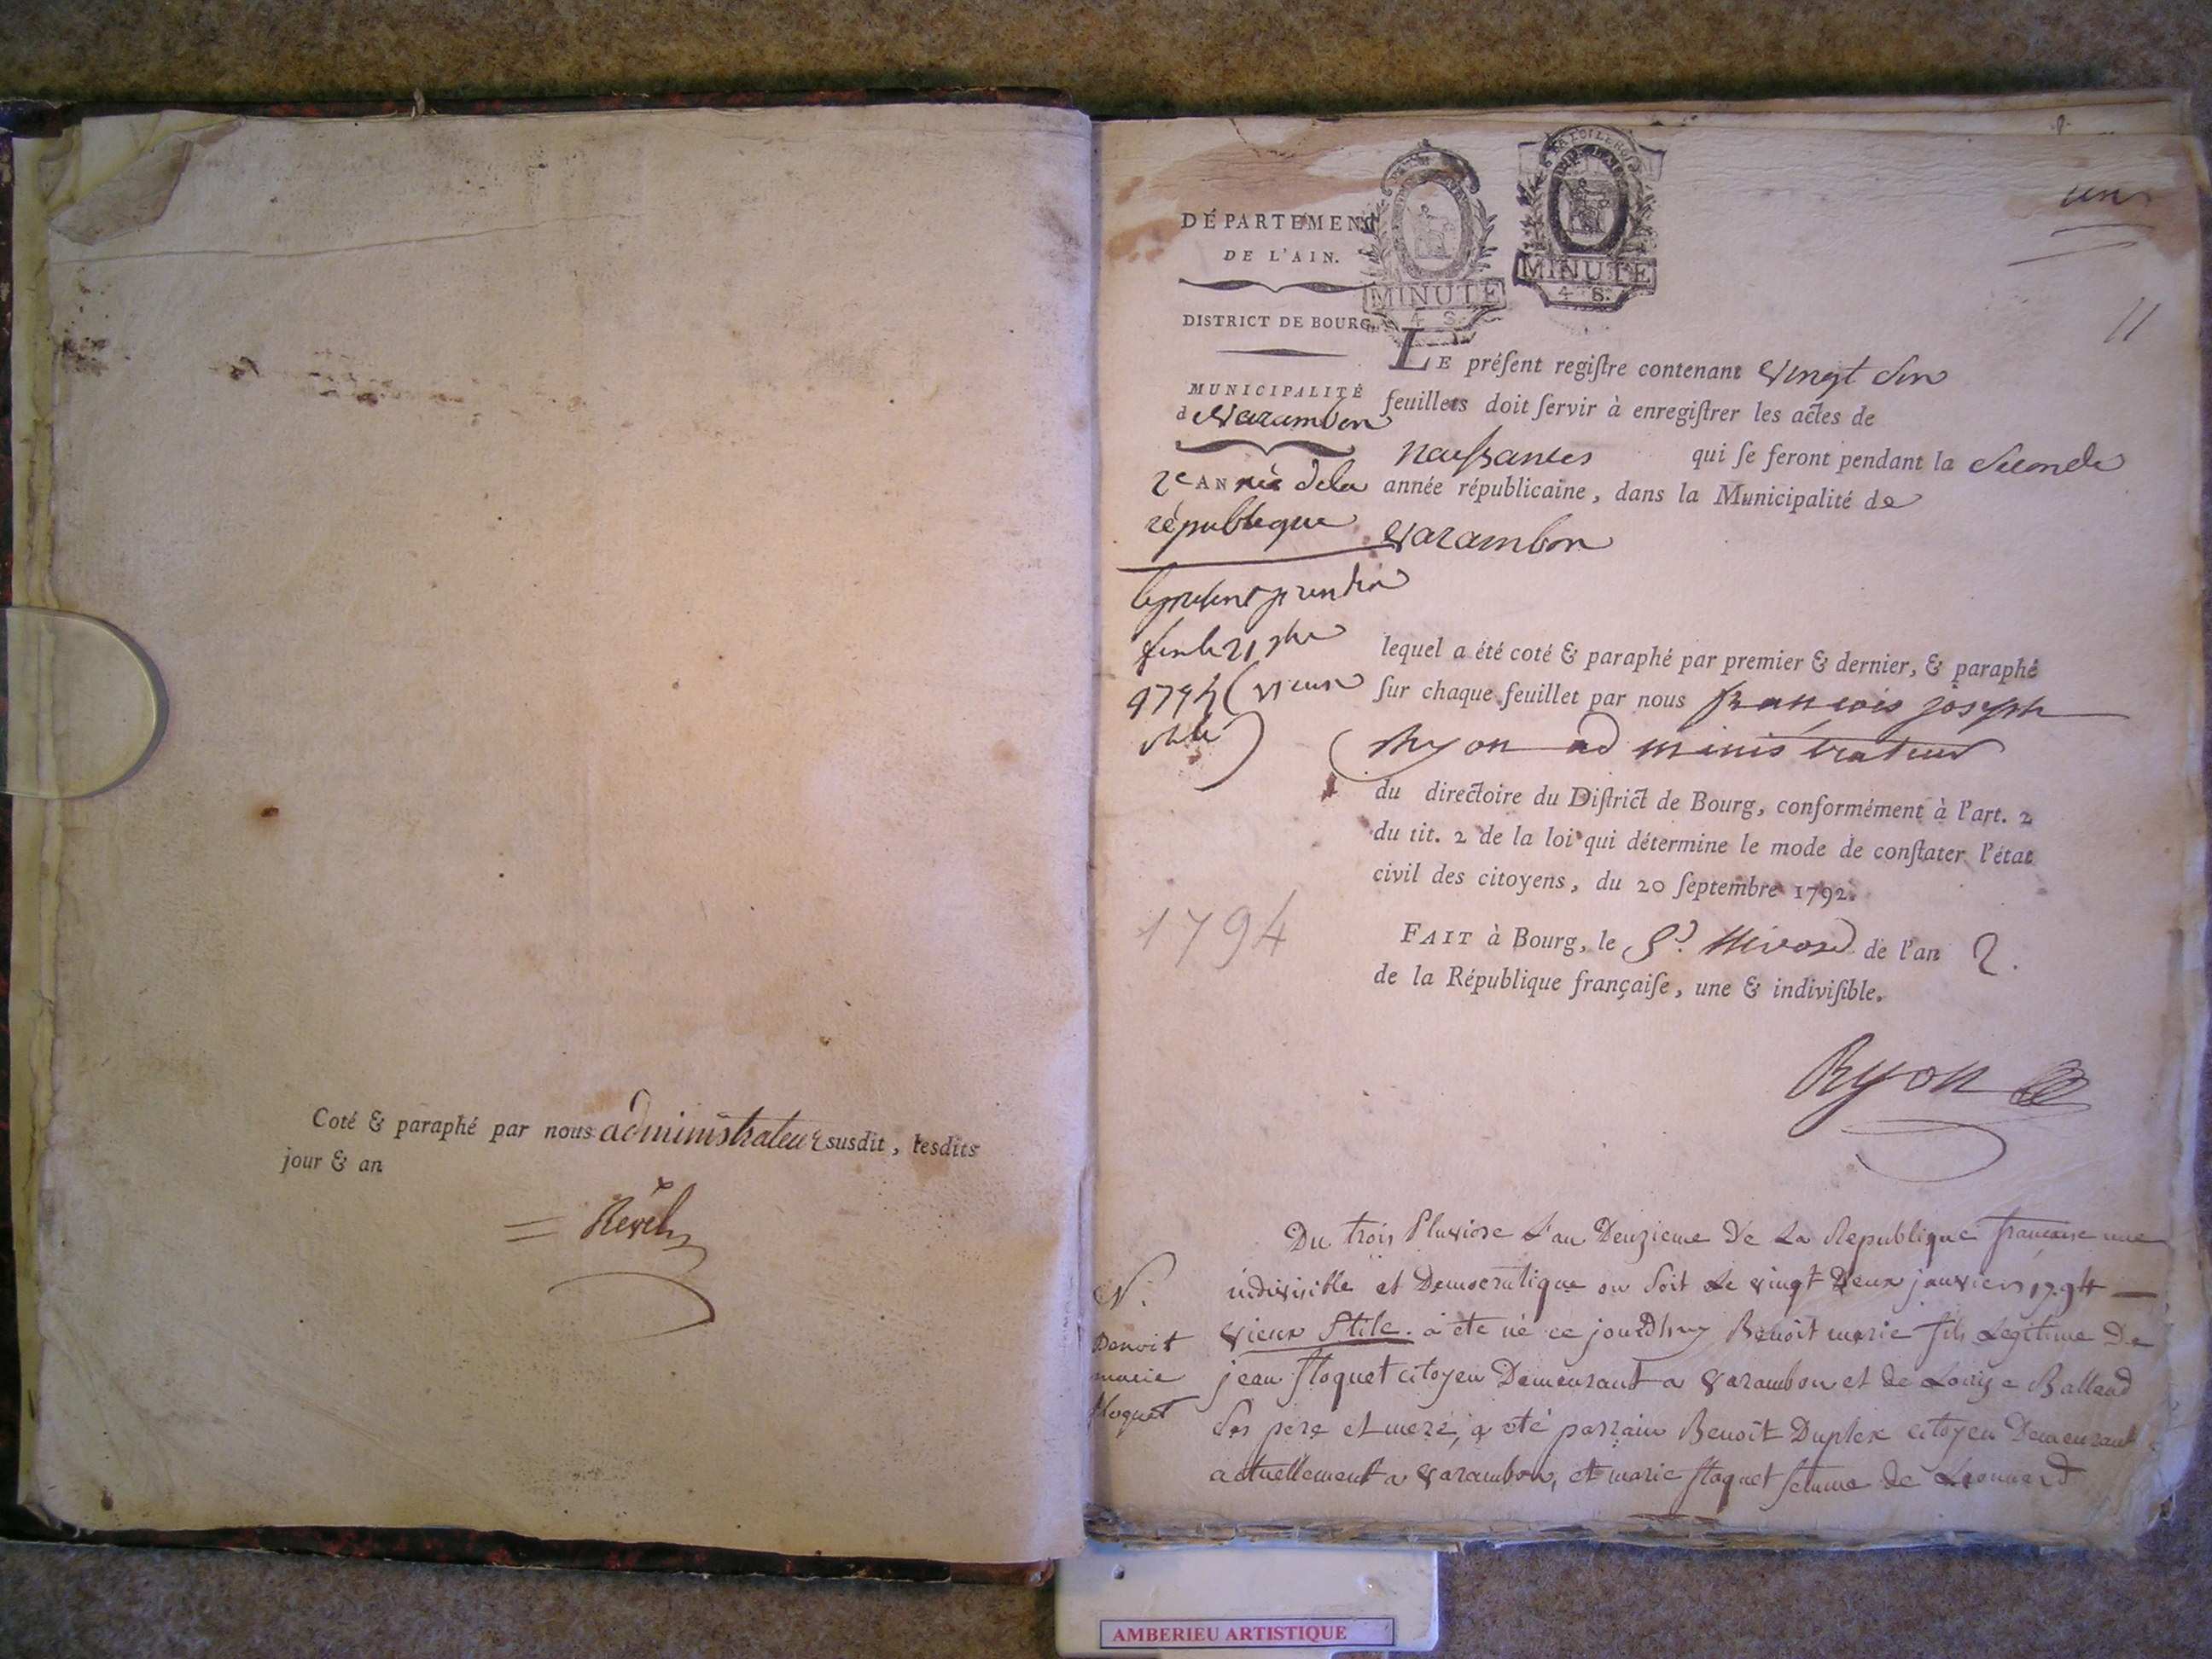 Coté & paraphé par nous administrateur susdit, lesdits
jour & an
Revel
un
11
DÉPARTEMENT
DE L'AIN.
DISTRICT DE BOURG.
MUNICIPALITÉ
de Varambon
2e ANnée dela
république
le present prendra
1794 (vieux
stile)
1794
MINUTE
4 S.
LA LOI LE ROI
MINUTE
4 S.
LE préſent regiſtre contenant vingt
feuillets doit ſervir à enregiſtrer les actes de
naissances qui ſe feront pendant la seconde
année républicaine, dans la Municipalité de
Varambon
lequel a été coté & paraphé par premier & dernier, & paraphé
ſur chaque feuillet par nous françois joseph
Ryon administrateur
du directoire du Diſtrict de Bourg, conformément à l'art. 2
du tit. 2 de la loi qui détermine le mode de conſtater l'état
civil des citoyens, du 20 ſeptembre 1792.
FAIT à Bourg, le nivose de l'an 2.
de la République françaiſe, une & indiviſible.
Ryon
Du trois Pluviose L'an Deuzieme De La Republique francaise une
indivisible et Democratique ou soit Le vingt Deux janvier 1794
vieux Stile. a été né ce jourdhuy Benoit marie fils Legitime De
jean floquet citoyen Demeurant a varambon et de Louise Balland
ses pere et mere, a eté parrain Benoit Duplex citoyen Demeurant
actuellement a varambon, et marie floquet femme de Leonnard
N.
Benoit
marie
floquet
AMBERIEU ARTISTIQUE